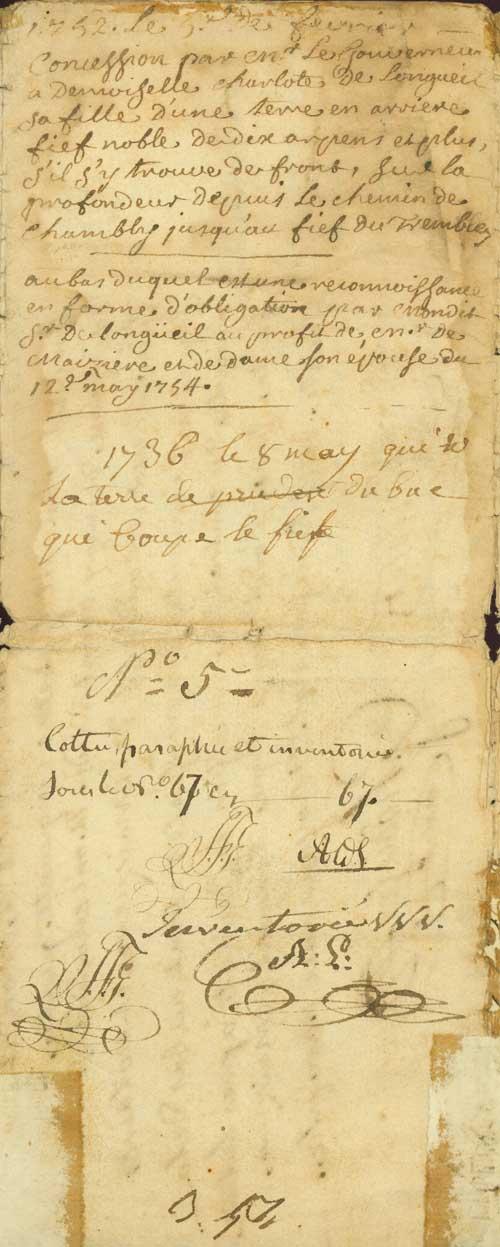 1752. le 3.e de fevrier
Concession par Mr. Le Gouverneur
a Demoiselle Charlote De Longueil
sa fille d'une terre en arriere
fief noble de dix arpens et plus,
s'il s'y trouve de front, sur la
profondeur depuis le chemin de
Chambly jusqu'au fief du Trembley
au bas duquel est une reconnoissance
en forme d'obligation par Mondit
Sr. De longüeil au profit de Mr. De
Maiziere et de dame son épouse du
12.e may 1754.
1736 le 8 may qué
La terre de pruden du buc
qué Coupe le fiefe
No 5
Cottée, paraphée et inventoriée
Sous le No. 67 en 67.
Inventorié VVV.
A: L:
3.